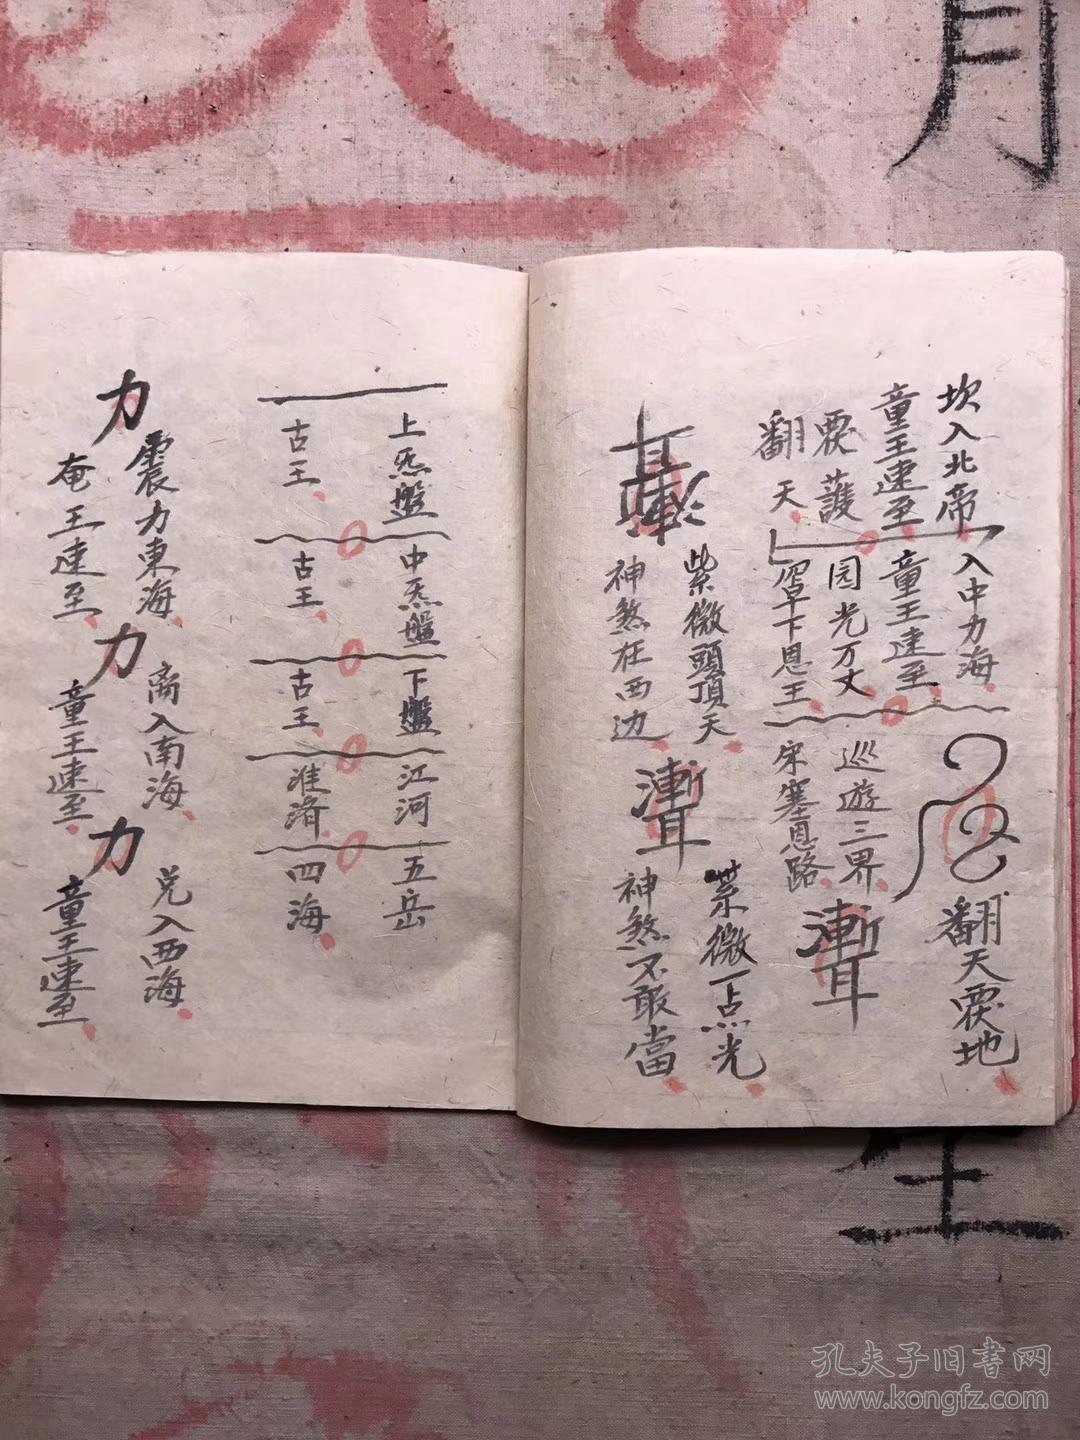 坎入北帝
童王速至
入中力海
童王速至
翻天霞地
霞護
翻天
园光万丈
罡下恩王
巡遊三界
宋塞恩路
紫微頭頂天
神煞在西边
紫微一点光
神煞不敢當
上炁盤
古王
中炁盤
古王
下盤
古王
江河
淮濟
五岳
四海
力
震力東海
奄王速至
力
离入南海
童王速至
力
兑入西海
童王速至
月
孔夫子旧書网
www.kongfz.com